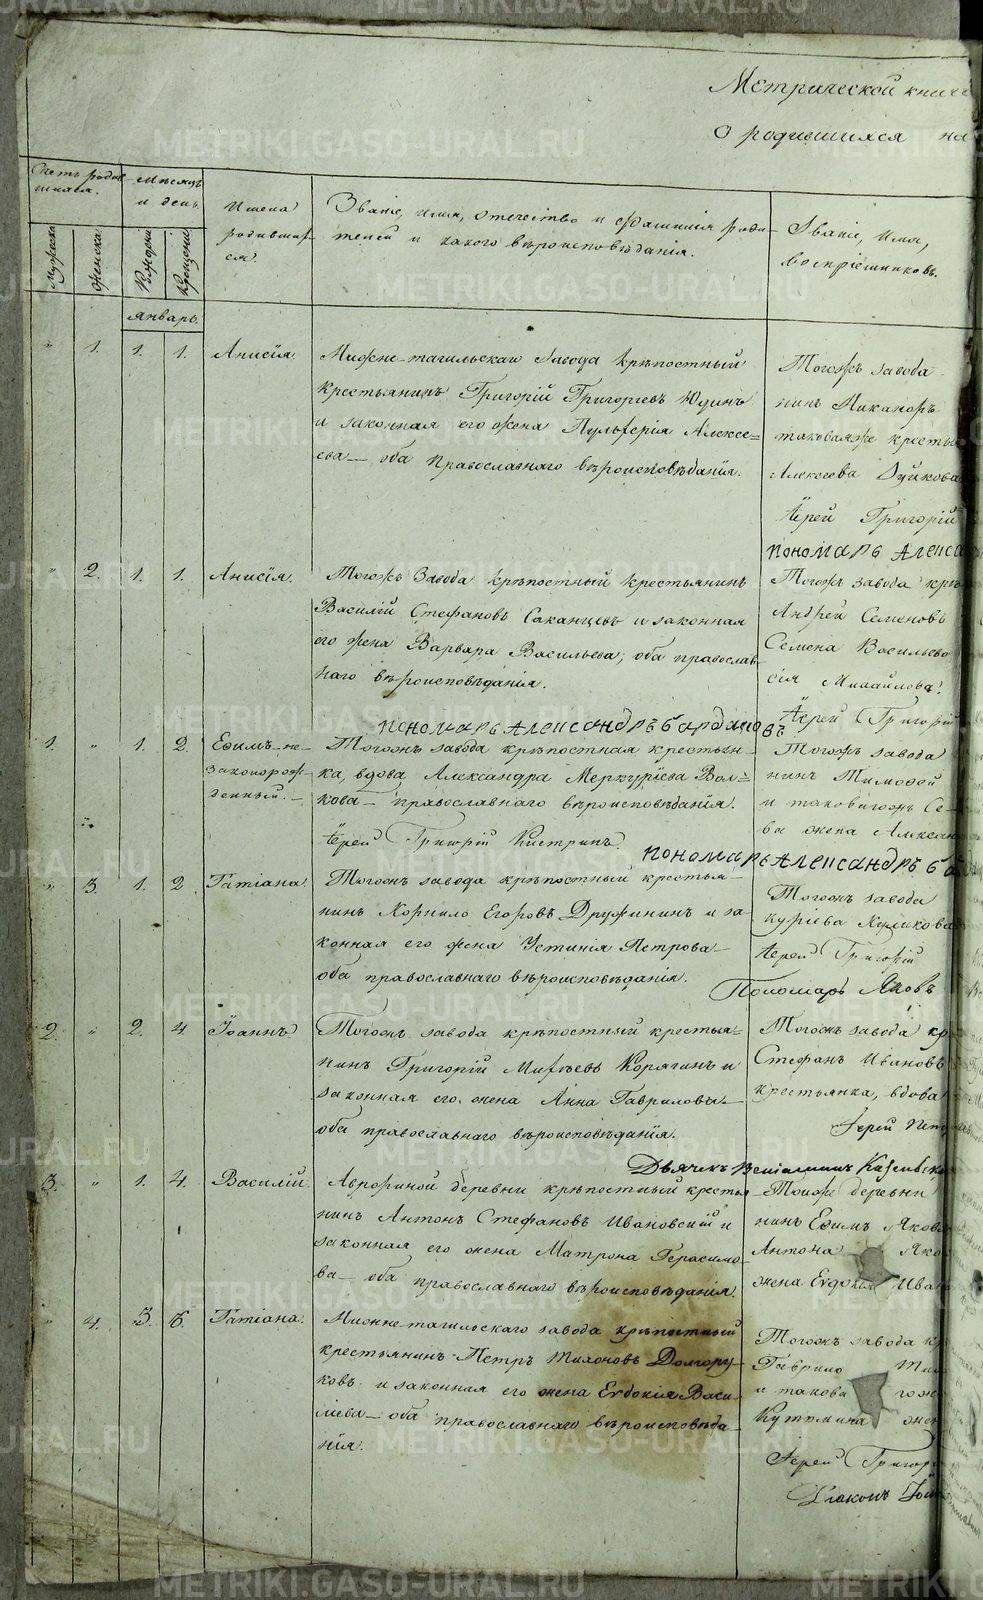 Метрической книги
О родившихся на
Счетъ родив-
шихся.
Мѣсяцъ
и день.
Имена
родивших-
ся.
Званіе, имя, отечество и фамилія роди-
телей и какого вѣроисповѣданія.
Званіе, имя,
воспріемниковъ.
Мужеска
Женска.
Рожденія
Крещенія
Январь.
" 1. 1. 1. Анисія
Нижне-тагильскаго Завода крѣпостный
крестьянинъ Григорій Григорьевъ Юдинъ
и законная его жена Пульхерія Алексе=
ева — оба православнаго вѣроисповѣданія.
Тогожъ завода
нинъ Никаноръ
таковаяже крестья
Алексеева
Іерей Григорій
Пономарь Алекса
" 2. 1. 1. Анисія.
Тогожъ Завода крѣпостный крестьянинъ
Василій Стефановъ Саканцевъ и законная
его жена Варвара Васильева, оба православ-
наго вѣроисповѣданія.
Тогожъ завода крѣ
Андрей Семеновъ
Семена Васильева
сія Михайлова.
Іерей Григорій
Пономарь Александръ Бардаковъ
1. " 1. 2. Ефимъ не-
законорож-
денный. —
Тогожъ завода крѣпостная крестьян-
ка, вдова Александра Меркуріева Вол=
кова — православнаго вѣроисповѣданія.
Іерей Григорій Кистринъ.
Тогожъ завода
нинъ Тимофей
и таковагожъ Се-
ва жена Алексан
Пономарь Александръ Ба
" 3. 1. 2. Татіана.
Тогожъ завода крѣпостный крестья-
нинъ Корнило Егоровъ Дружининъ и за-
конная его жена Устинія Петрова —
оба православнаго вѣроисповѣданія.
Тогожъ завода
куріева Куликова
Іерей Григорій
Пономарь Яковъ
2. " 2. 4. Іоаннъ.
Тогожъ завода крѣпостный крестья=
нинъ Григорій Михѣевъ Корягинъ и
законная его жена Анна Гаврилова —
оба православнаго вѣроисповѣданія.
Тогожъ завода кр
Стефанъ Ивановъ
крестьянка, вдова
Іерей Петр
Дьячекъ Веніаминъ
3. " 1. 4. Василій.
деревни крѣпостный крестья-
нинъ Антонъ Стефановъ Ивановскій и
законная его жена Матрона Герасимо-
ва — оба православнаго вѣроисповѣданія.
Тойже деревни
нинъ Ефимъ Яковл
Антона Яко
жена Евдокія Ива
" 4. 3. 6. Татіана.
Нижне-тагильскаго завода крѣпостный
крестьянинъ Петръ Тихоновъ Долгору-
ковъ и законная его жена Евдокія Васи-
льева — оба православнаго вѣроисповѣда-
нія.
Тогожъ завода кр
Гаврило
и такова гож
жен
Іерей Григор
Діаконъ
METRIKI.GASO-URAL.RU